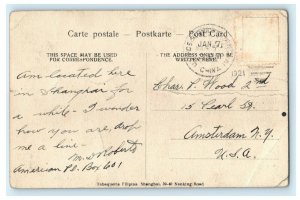 Carte postale — Postkarte — Post Card
THIS SPACE MAY BE USED
FOR CORRESPONDENCE.
THE ADDRESS ONLY TO BE
WRITTEN HERE.
JAN. 7
1921
CHINA
Am located here
in Shanghai for
a while - I wonder
how you are, drop
me a line -
M. D. Roberts
American P.O. Box 601
Chas. P. Wood 2nd
15 Pearl St.
Amsterdam N.Y.
U.S.A.
Tabaqueria Filipina Shanghai, Nanking Road